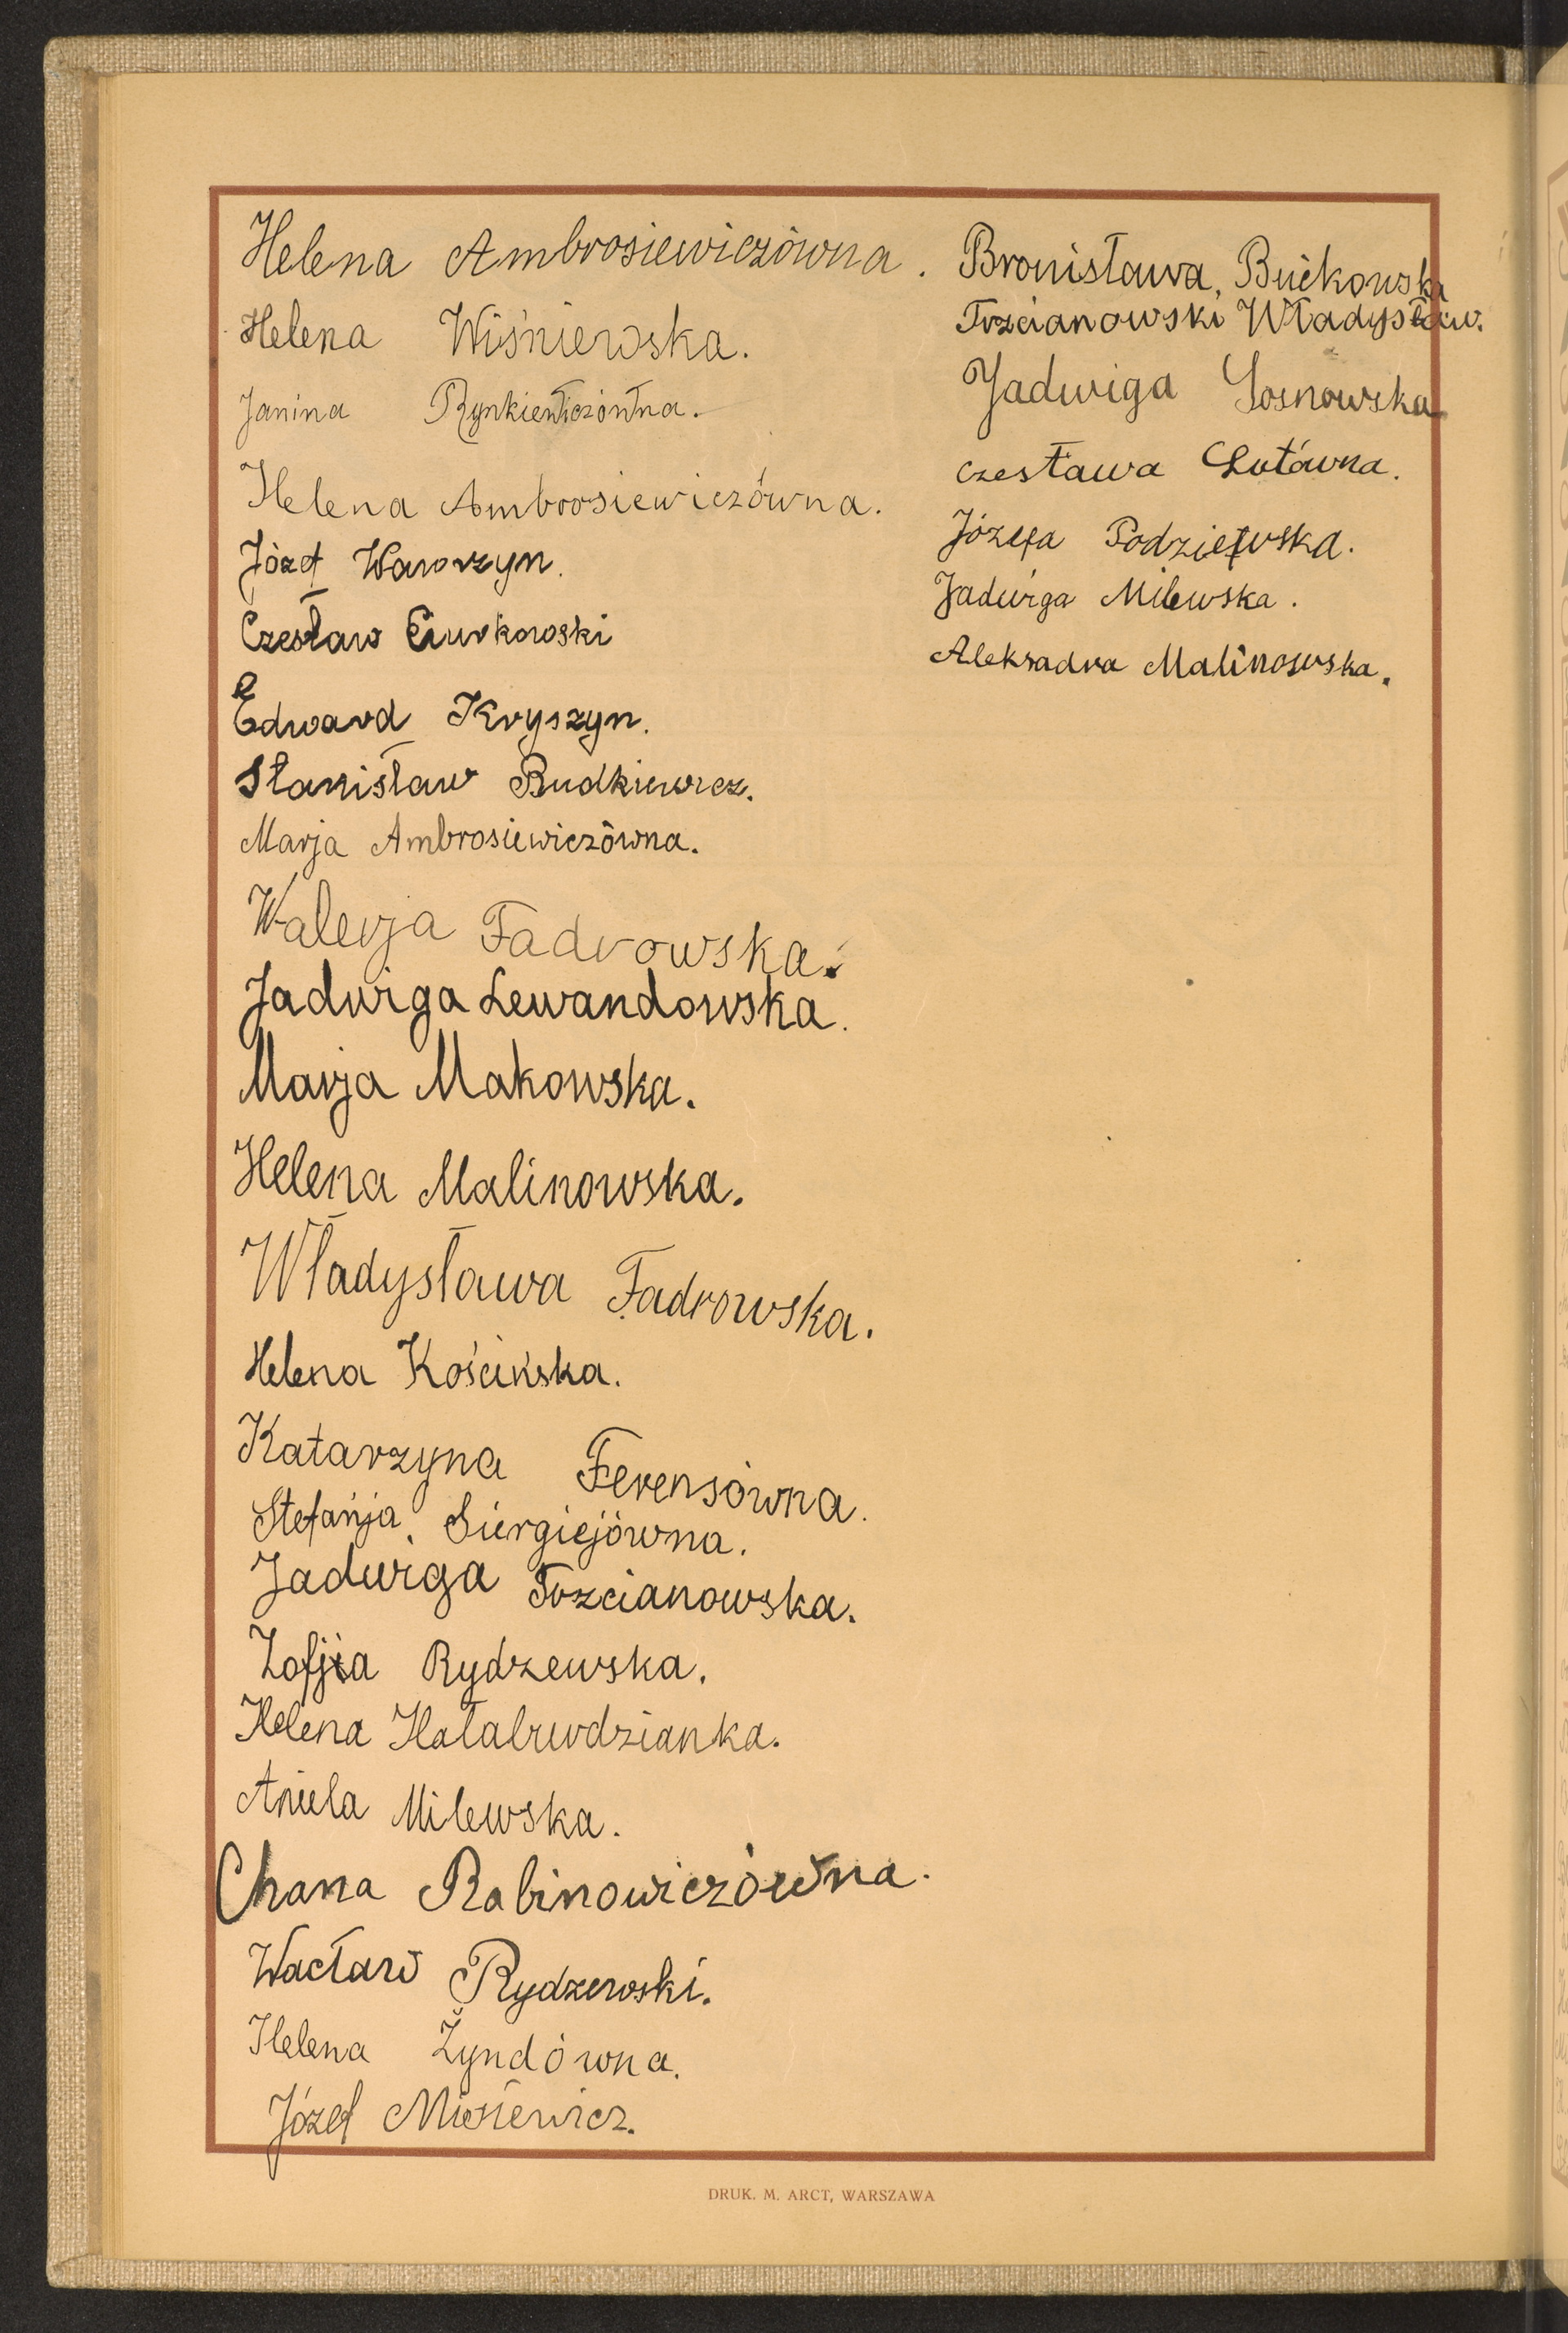 Helena Ambrosiewiczówna.
Helena Wiśniewska.
Janina Rynkiewiczówna.
Helena Ambrosiewiczówna.
Józef Wawrzyn.
Czesław Ciurkowski
Edward Kryszyn.
Stanisław Budkiewicz.
Marja Ambrosiewiczówna.
Walerja Fadrowska.
Jadwiga Lewandowska.
Marja Makowska.
Helena Malinowska.
Władysława Fadrowska.
Helena Kościńska.
Katarzyna Ferensówna.
Stefanja Siergiejówna.
Jadwiga Trzcianowska.
Zofja Rydzewska.
Helena Hałaburdzianka.
Aniela Milewska.
Chana Rabinowiczówna.
Wacław Rydzewski.
Helena Żyndówna.
Józef Misiewicz.
Bronisława Bućkowska
Trzcianowski Władysław.
Jadwiga Sosnowska
Czesława Lutówna.
Józefa Podziewska.
Jadwiga Milewska.
Aleksadra Malinowska.
DRUK. M. ARCT, WARSZAWA